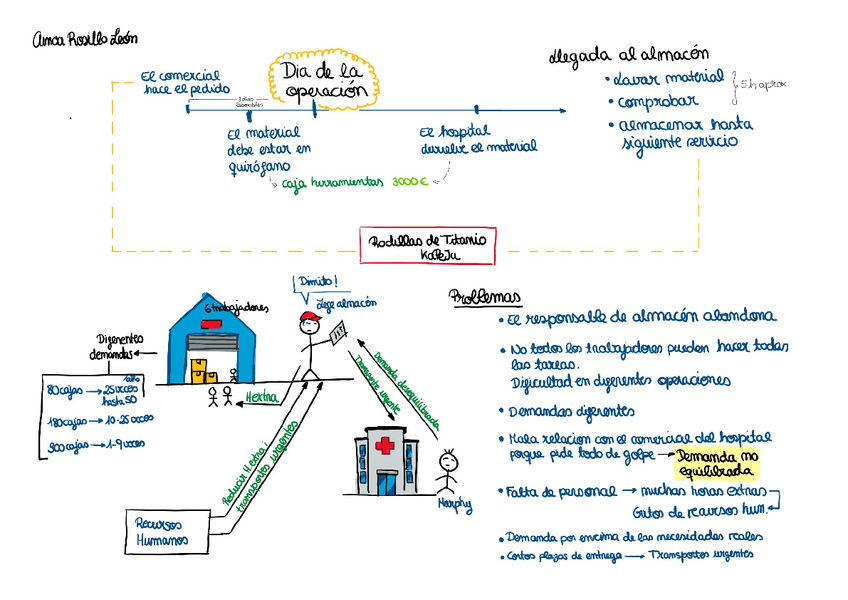 Ainoa Rosillo León
El comercial
hace el pedido
Dia de la
operación
El material
debe estar en
quirófano
El hospital
devuelve el material
caja herramientas 3000€
Llegada al almacén
• Lavar material
• comprobar
5h aprox
• almacenar hasta
siguiente servicio
Rodillas de Titanio
KaPeJu
6 trabajadores
Dimito!
Jefe almacén
Diferentes
demandas
80 cajas → 25 veces
hasta 50
180 cajas → 10-25 veces
900 cajas → 1-9 veces
H extra
Demanda desequilibrada
Transporte urgente
Reducir H extra i
transportes urgentes
Recursos
Humanos
Murphy
Problemas
• El responsable de almacén abandona
• No todos los trabajadores pueden hacer todas
las tareas.
Dificultad en diferentes operaciones
• Demandas diferentes
• Mala relacion con el comercial del hospital
porque pide todo de golpe → Demanda no
equilibrada
• Falta de personal → muchas horas extras
Gatos de recursos hum.
• Demanda por encima de las necesidades reales
• Cortos plazos de entrega → Transportes urgentes